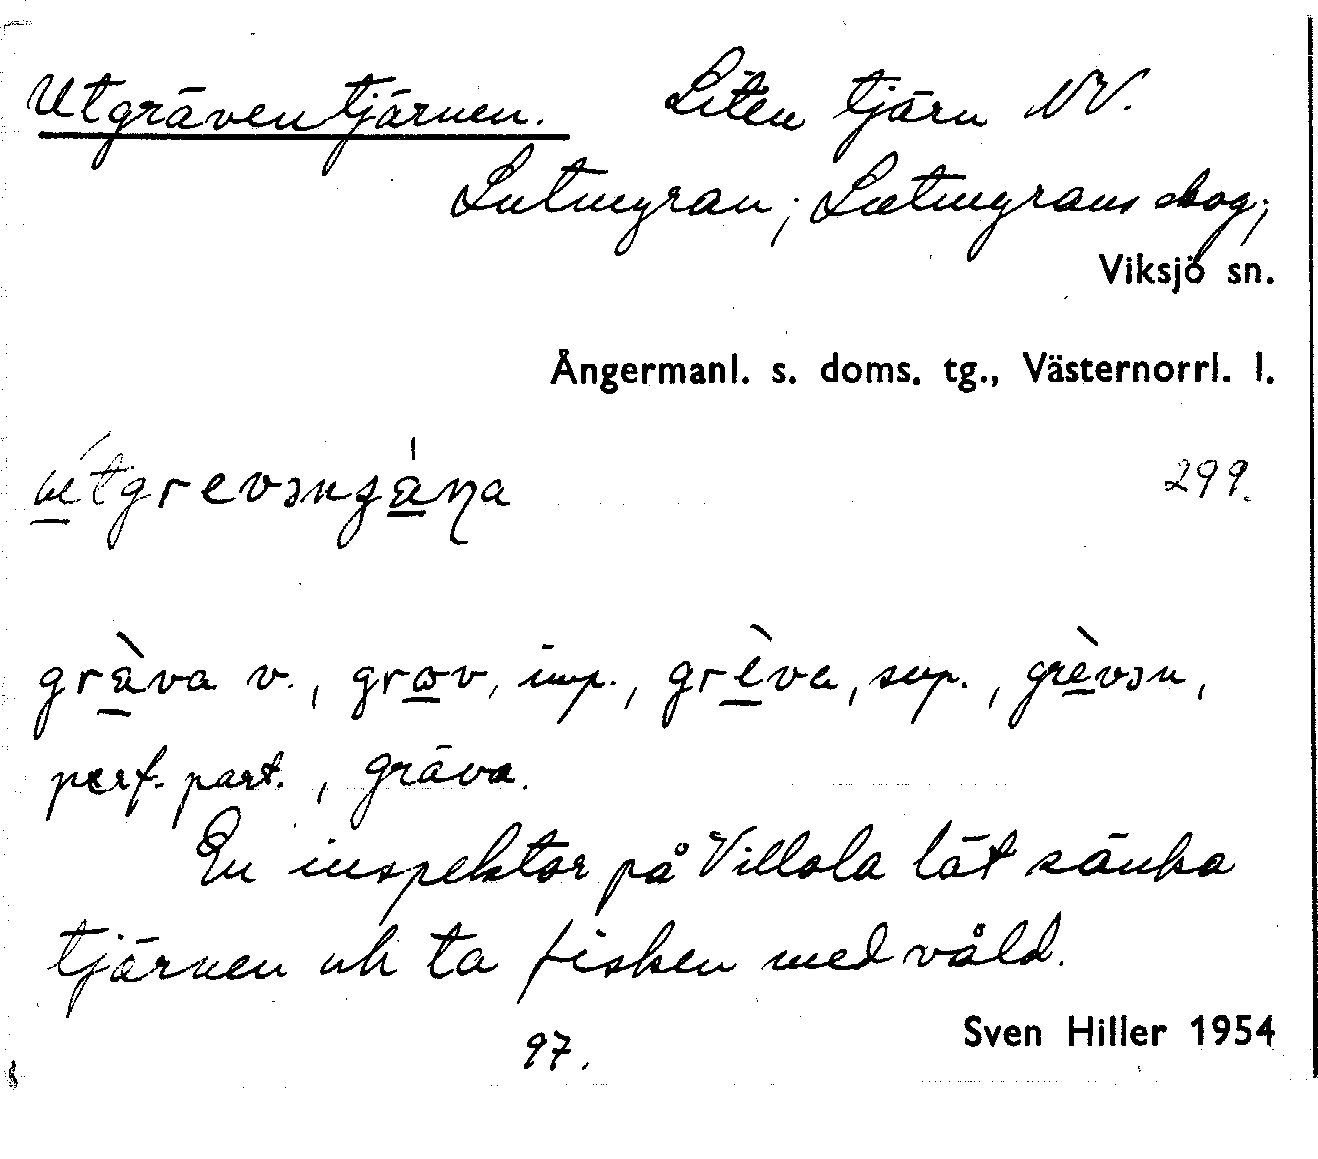 Utgräventjärnen. Liten tjärn NV.
Lutmyran; Lutmyrans skog;
Viksjö sn.
Ångermanl. s. doms. tg., Västernorrl. l.
299.
gràva v., grov, imp., grèva, sup., grèvən,
perf. part., gräva.
En inspektor på Villola lät sänka
tjärnen och ta fisken med våld.
Sven Hiller 1954
97.